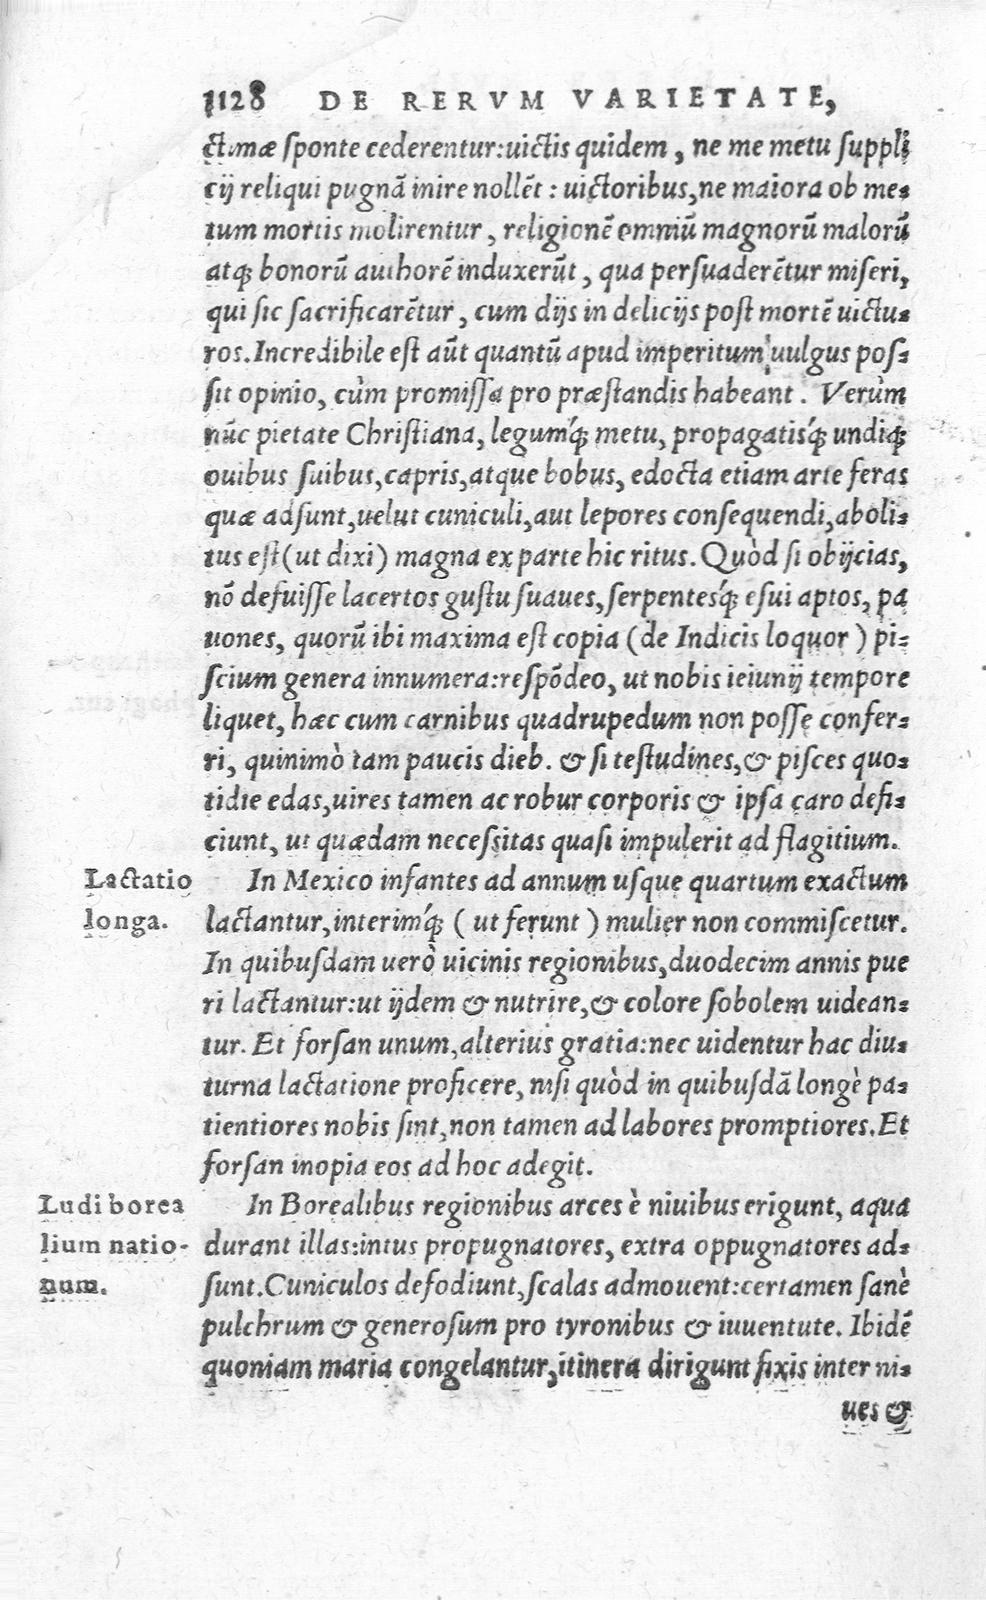 1128 DE RERVM VARIETATE,
ctimæ sponte cederentur:uictis quidem, ne me metu suppli
cij reliqui pugnã inire nollẽt: uictoribus,ne maiora ob me-
tum mortis molirentur, religionẽ omniũ magnorũ malorũ
atq; bonorũ authorẽ induxerũt, qua persuaderẽtur miseri,
qui sic sacrificarẽtur, cum dijs in delicijs post mortẽ uictu-
ros.Incredibile est aũt quantũ apud imperitum uulgus pos-
sit opinio, cùm promissa pro præstandis habeant. Verùm
nũc pietate Christiana, legumq́; metu, propagatisq́; undiq;
ouibus suibus,capris,atque bobus, edocta etiam arte feras
quæ adsunt,uelut cuniculi,aut lepores consequendi,aboli-
tus est(ut dixi) magna ex parte hic ritus. Quòd si obijcias,
nõ defuisse lacertos gustu suaues,serpentesq́; esui aptos, pa
uones, quorũ ibi maxima est copia (de Indicis loquor) pi-
scium genera innumera:respõdeo, ut nobis ieiunij tempore
liquet, hæc cum carnibus quadrupedum non posse confer-
ri, quinimò tam paucis dieb. & si testudines,& pisces quo-
tidie edas,uires tamen ac robur corporis & ipsa caro defi-
ciunt, ut quædam necessitas quasi impulerit ad flagitium.
Lactatio
longa.
In Mexico infantes ad annum usque quartum exactum
lactantur,interimq́; (ut ferunt) mulier non commiscetur.
In quibusdam uerò uicinis regionibus,duodecim annis pue
ri lactantur:ut ijdem & nutrire,& colore sobolem uidean-
tur. Et forsan unum,alterius gratia:nec uidentur hac diu-
turna lactatione proficere, nisi quòd in quibusdã longè pa-
tientiores nobis sint,non tamen ad labores promptiores.Et
forsan inopia eos ad hoc adegit.
Ludi borea
lium natio-
num.
In Borealibus regionibus arces è niuibus erigunt, aqua
durant illas:intus propugnatores, extra oppugnatores ad-
sunt.Cuniculos defodiunt,scalas admouent:certamen sanè
pulchrum & generosum pro tyronibus & iuuentute. Ibidẽ
quoniam maria congelantur,itinera dirigunt fixis inter ni-
ues &